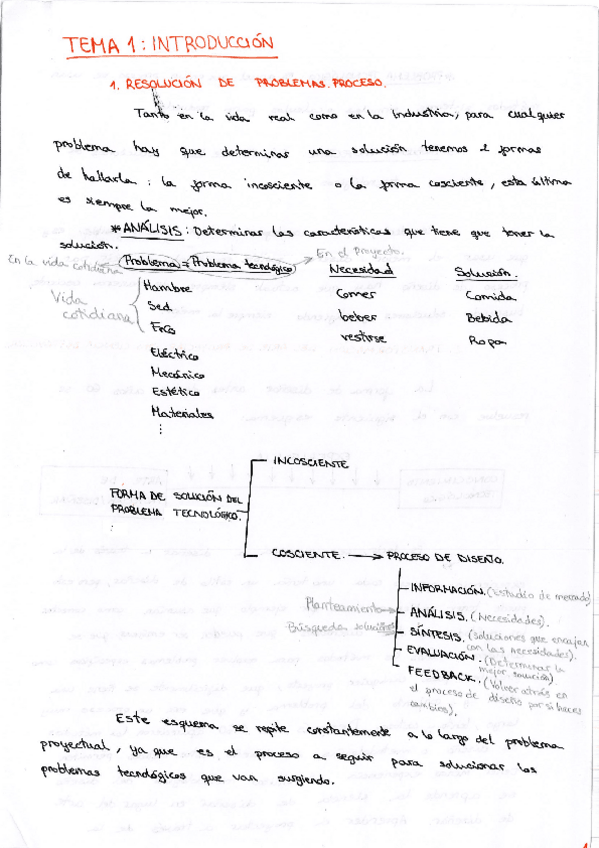 TEMA 1: INTRODUCCIÓN
1. RESOLUCIÓN DE PROBLEMAS. PROCESO.
Tanto en la vida real como en la Industria, para cualquier
problema hay que determinar una solución tenemos 2 formas
de hallarla: la forma incosciente o la forma cosciente, esta última
es siempre la mejor.
*ANÁLISIS: Determinar las características que tiene que tener la
solución.
En la vida cotidiana
Problema = Problema tecnológico
En el Proyecto.
Necesidad
Solución.
Vida
cotidiana
Hambre
Comer
Comida
Sed
beber
Bebida
Frío
vestirse
Ropa
Eléctrico
Mecánico
Estético
Materiales
INCOSCIENTE
FORMA DE SOLUCIÓN DEL
PROBLEMA TECNOLÓGICO.
COSCIENTE. → PROCESO DE DISEÑO.
INFORMACIÓN. (Estudio de mercado)
Planteamiento
ANÁLISIS. (Necesidades).
Búsqueda soluciones
SÍNTESIS. (Soluciones que encajan
con las necesidades).
EVALUACIÓN. (Determinar la
mejor solución)
FEEDBACK. (Volver atrás en
el proceso de diseño por si haces
cambios).
Este esquema se repite constantemente a lo largo del problema
proyectual, ya que es el proceso a seguir para solucionar los
problemas tecnológicos que van surgiendo.